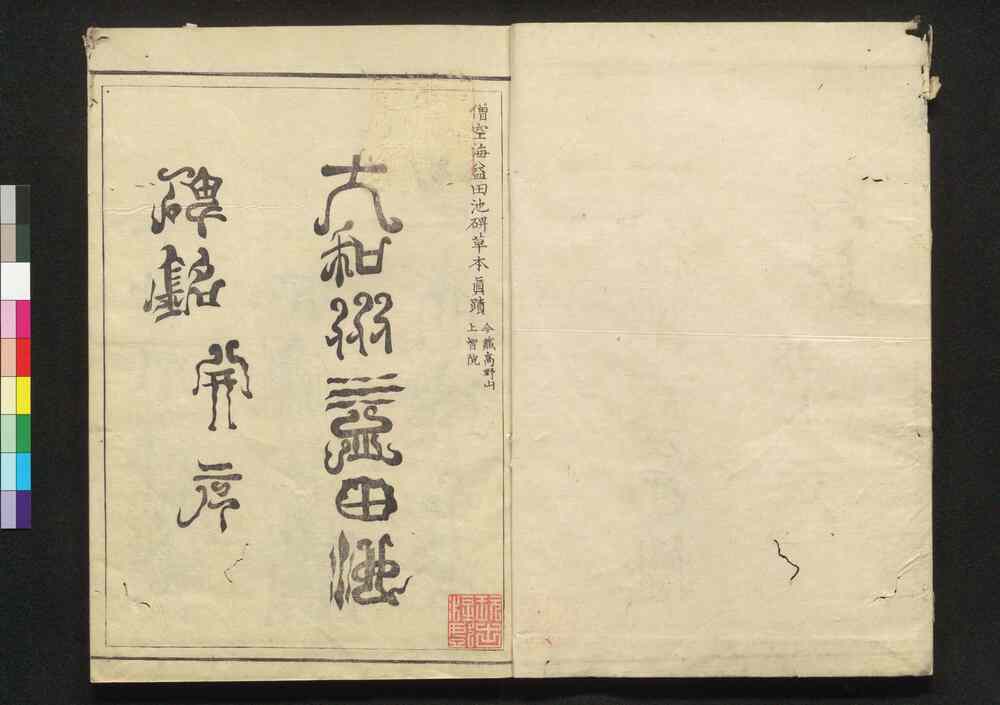 僧空海益田池碑草本眞蹟
今藏高野山
上智院
大和州益田池
碑銘并序